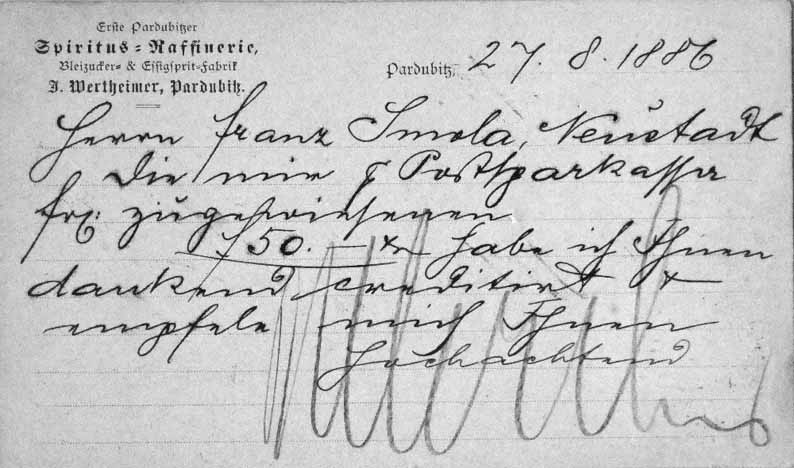 Erste Pardubitzer
Spiritus-Raffinerie,
Bleizucker- & Essigsprit-Fabrik
J. Wertheimer, Pardubitz.
Pardubitz, 27. 8. 1886
Herrn Franz Smola, Neustadt
Die mir p Postsparkasse
frc: zugewiesenen
f 50.— habe ich Ihnen
dankend creditirt &
empfele mich Ihnen
Hochachtend